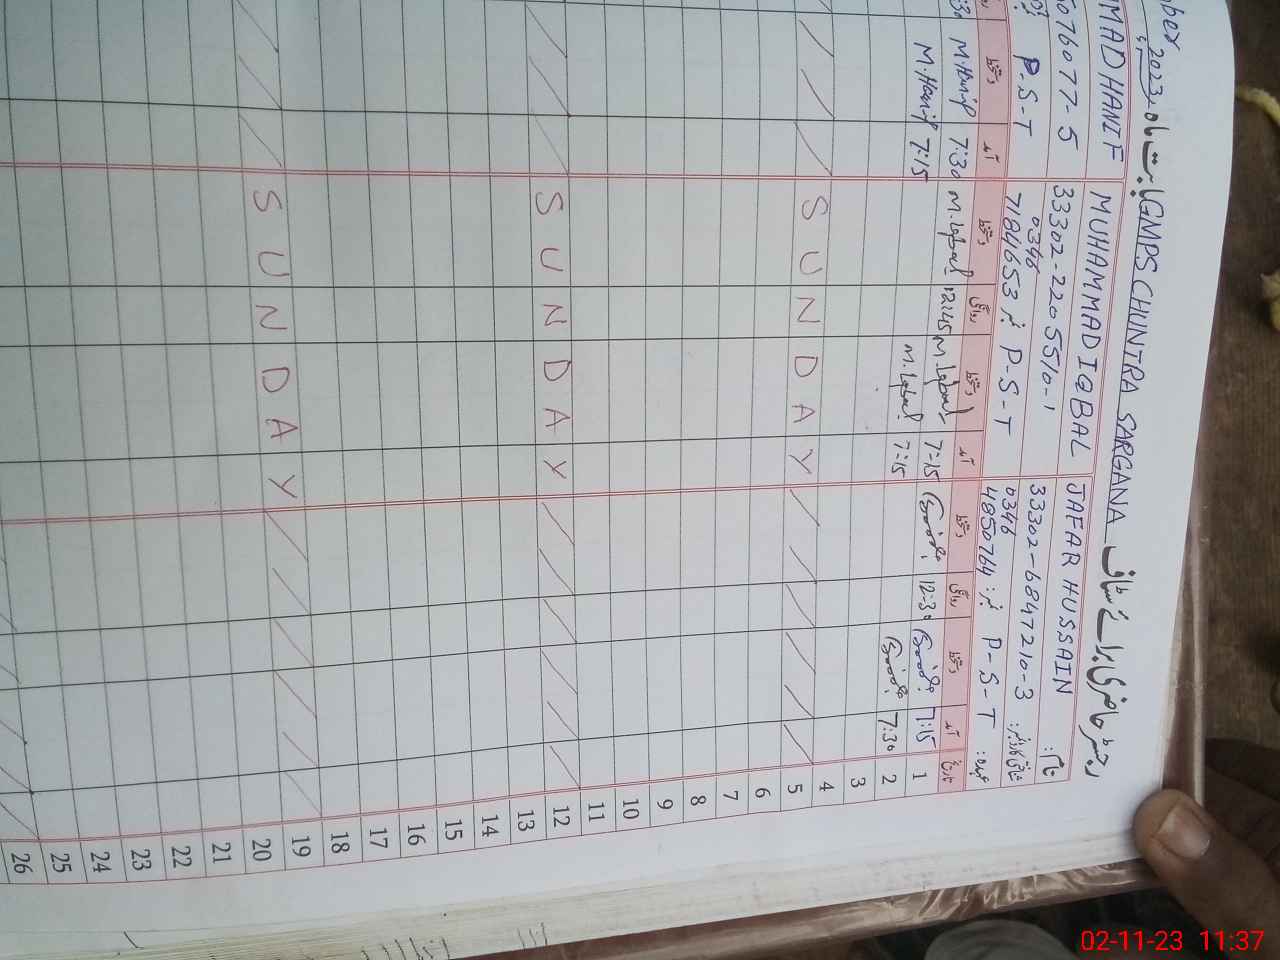 رجسٹر حاضری برائے سٹاف GMPS CHUNTRA SARGANA بابت ماہ
2023ء
نام: JAFAR HUSSAIN
MUHAMMAD IQBAL
MAD HANIF
شناختی کارڈ نمبر: 33302-6847210-3
33302-2205510-1
076077-5
عہدہ: P-S-T نمبر: 0346 4850764
P-S-T نمبر 0346 7184653
P-S-T
تاریخ آمد دستخط روانگی دستخط آمد دستخط روانگی دستخط آمد دستخط
1 7:15 12:30 7=15 M.Iqbal 12:45 M.Iqbal 7:30 M.Hanif
2 7:30 7=15 M.Iqbal 7:15 M.Hanif
3
4
5 SUNDAY
6
7
8
9
10
11
12 SUNDAY
13
14
15
16
17
18
19 SUNDAY
20
21
22
23
24
25
26
02-11-23 11:37